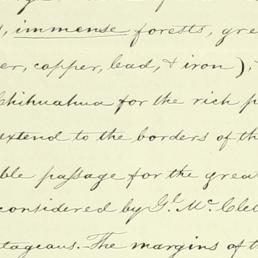 , immense forests, gre
er, copper, lead, & iron),
Chihuahua for the rich p
extend to the borders of th
ble passage for the great
considered by Gl. Mc. Clel
tageous. The margins of t